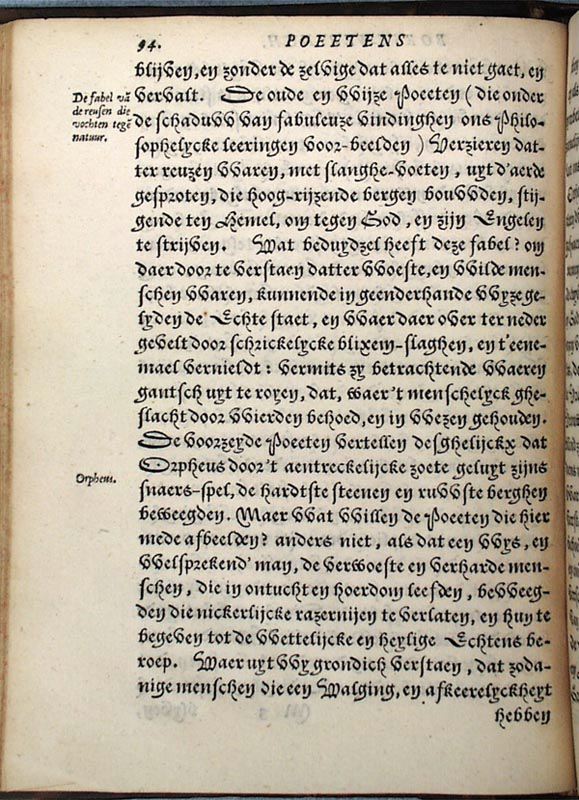 94. POEETENS
blijven, en zonder de zelvige dat alles te niet gaet, en
De fabel vā
de reusen die
vochten tegē
natuur.
vervalt. De oude en vvijze Poeeten (die onder
de schaduvv van fabuleuze vindinghen ons Philo-
sophelycke leeringen voor-beelden) verzieren dat-
ter reuzen vvaren, met slanghe-voeten, uyt d'aerde
gesproten, die hoog-rijzende bergen bouvvden, stij-
gende ten Hemel, om tegen God, en zijn Engelen
te strijven. Wat beduydzel heeft deze fabel? om
daer door te verstaen datter vvoeste, en vvilde men-
schen vvaren, kunnende in geenderhande vvyze ge-
lyden de Echte staet, en vvaer daer over ter neder
gevelt door schrickelycke blixem-slaghen, en t'eene-
mael vernieldt: vermits zy betrachtende vvaeren
gantsch uyt te royen, dat, waer't menschelyck ghe-
slacht door vvierden behoed, en in vvezen gehouden.
De voorzeyde Poeeten vertellen desghelijckx dat
Orpheus.
Orpheus door't aentreckelijcke zoete geluyt zijns
snaers-spel, de hardtste steenen en ruvvste berghen
beweegden. Maer vvat vvillen de Poeeten die hier
mede afbeelden? anders niet, als dat een vvys, en
vvelsprekend' man, de vervvoeste en verharde men-
schen, die in ontucht en hoerdom leefden, bevveeg-
den die nickerlijcke razernijen te verlaten, en hun te
begeven tot de vvettelijcke en heylige Echtens be-
roep. Waer uyt vvy grondich verstaen, dat zoda-
nige menschen die een Walging, en afkeerelyckheyt
hebben